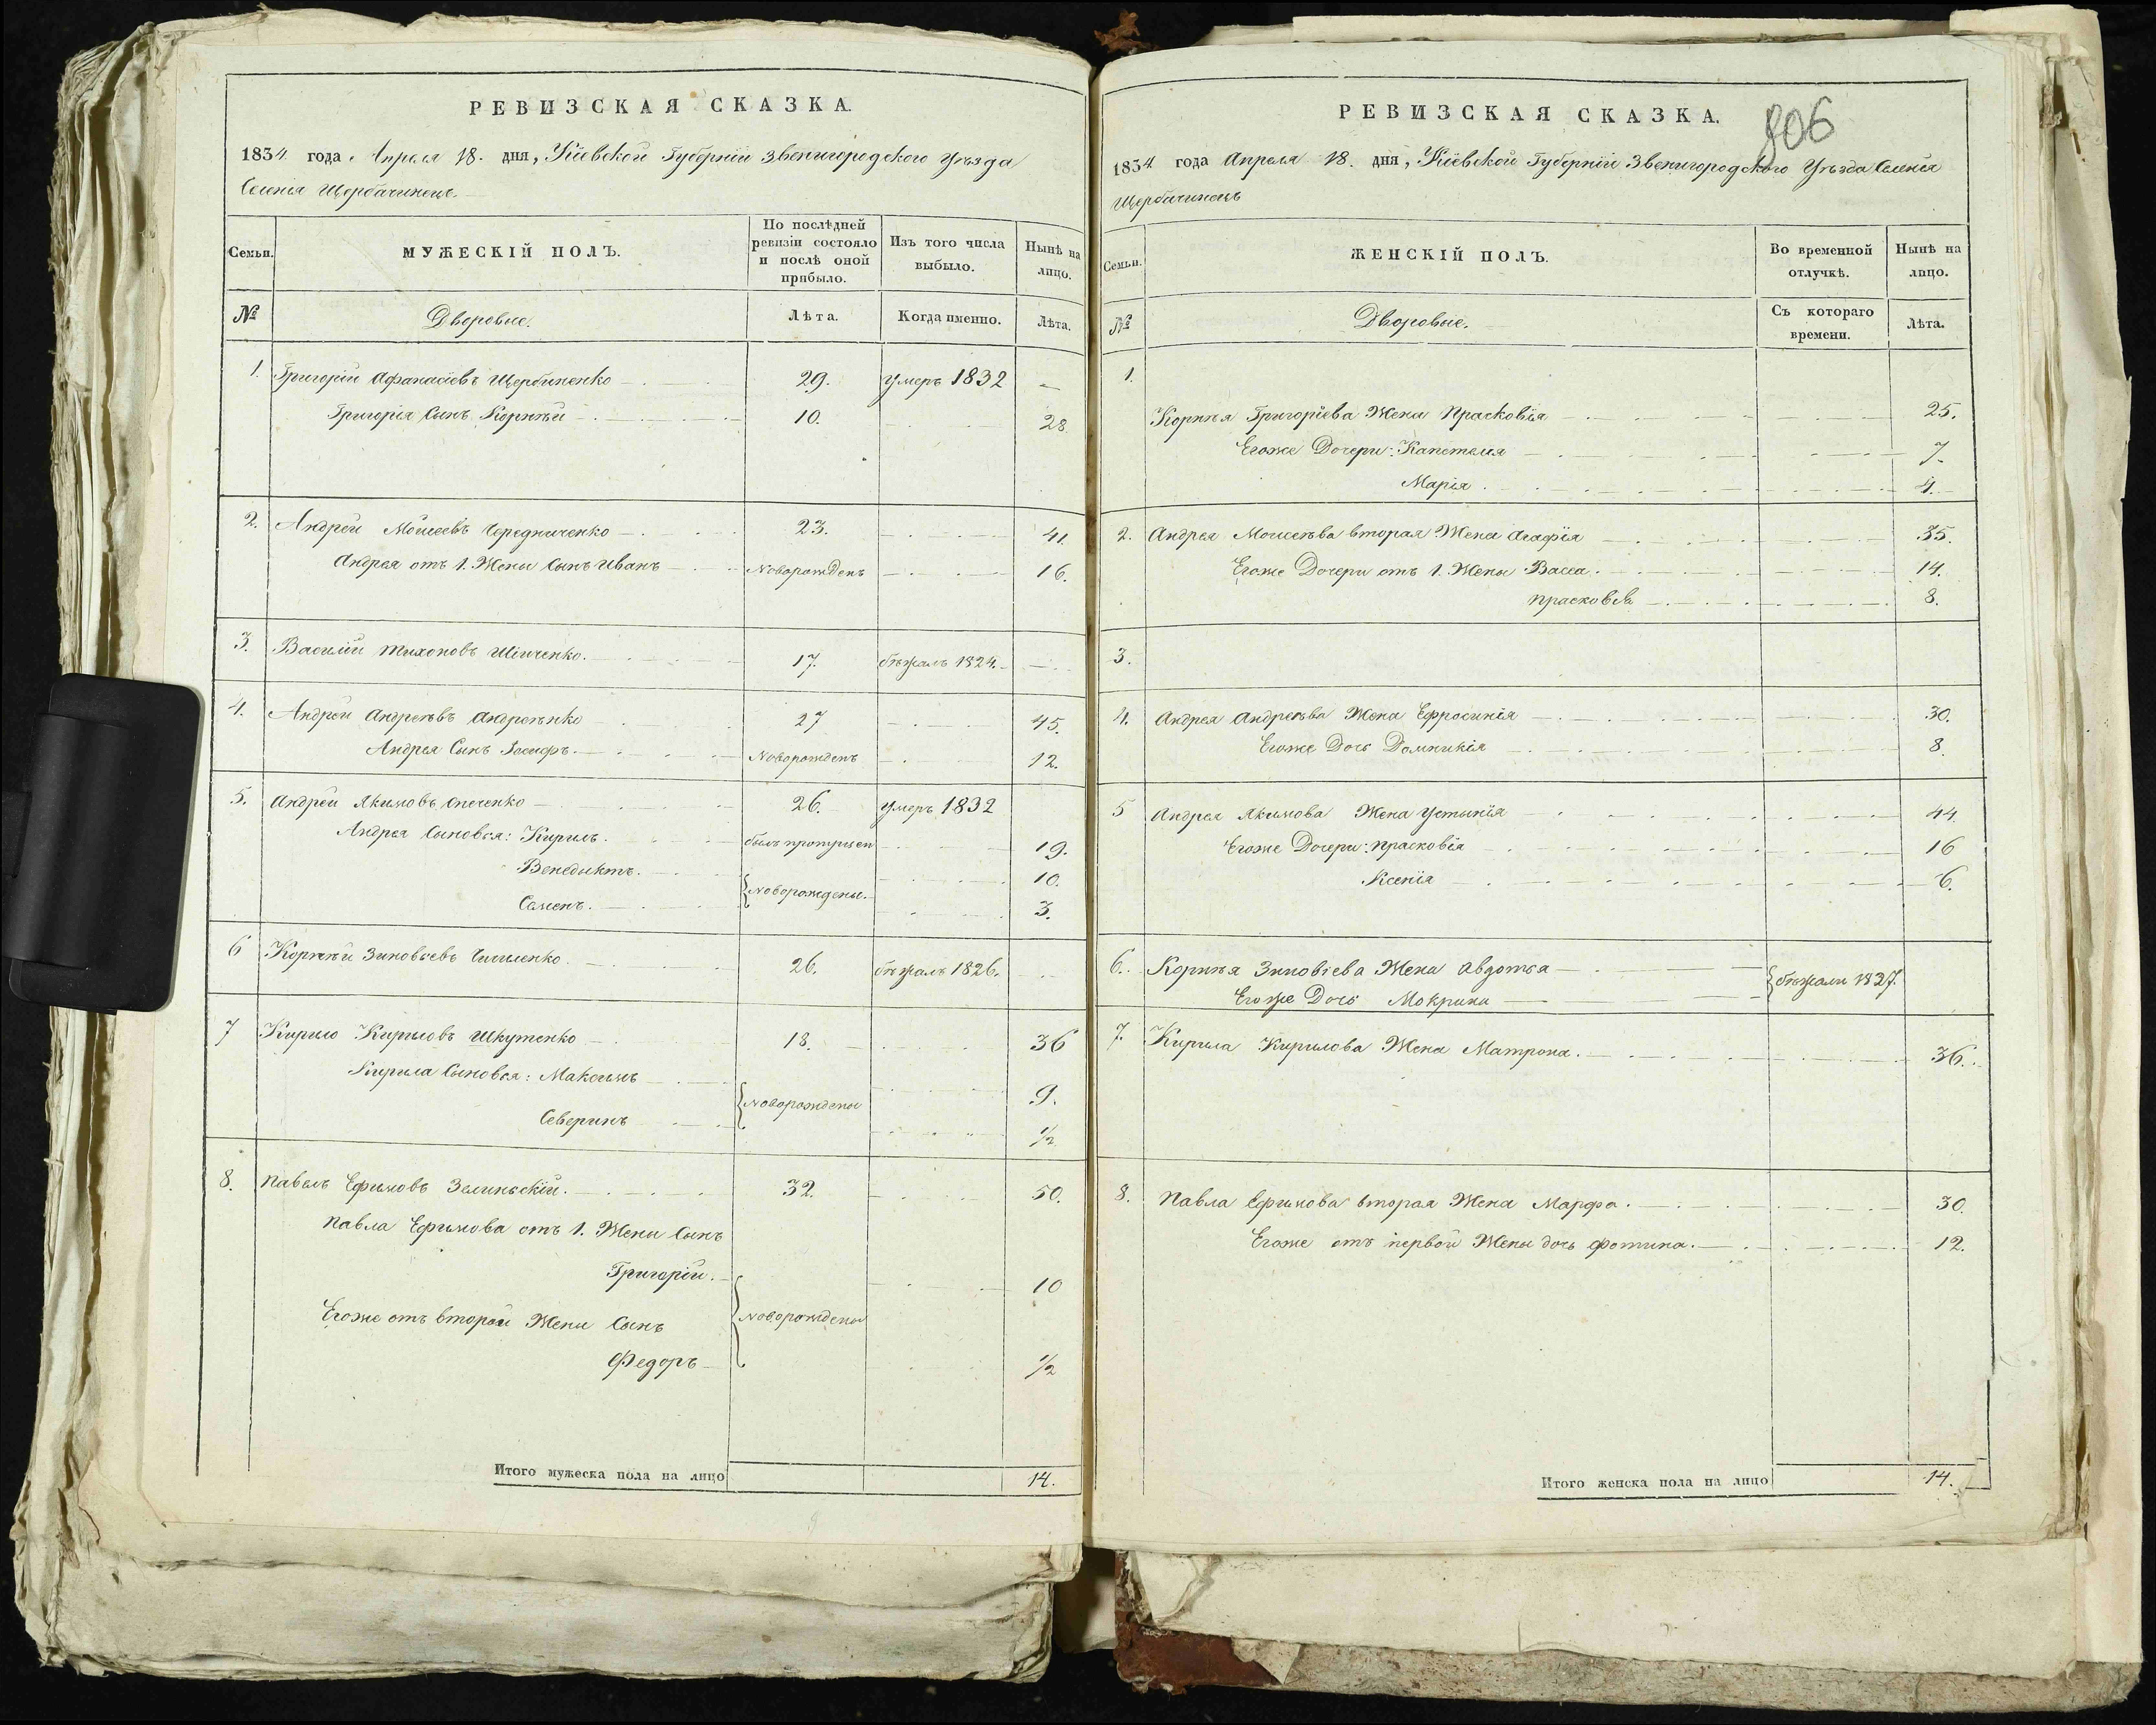 РЕВИЗСКАЯ СКАЗКА.
1834 года Апреля 18. дня, Кіевской Губерніи Звенигородского Уѣзда
Селенія Щербачинецъ
Семьи.
МУЖЕСКІЙ ПОЛЪ.
По послѣдней ревизіи состояло и послѣ оной прибыло.
Изъ того числа выбыло.
Нынѣ на лицо.
№
Дворовые.
Лѣта.
Когда именно.
Лѣта.
1. Григорій Афанасіевъ Щербиненко 29. умеръ 1832
Григорія Сынъ Корнѣй 10. 28
2. Андрей Моисеевъ Чередниченко 23. 41.
Андрея отъ 1. Жены Сынъ Иванъ Новорожденъ 16.
3. Василій Тихоновъ 17. бѣжалъ 1824.
4. Андрей Андреевъ Андреенко 27 45.
Андрея Сынъ Іосифъ. Новорожденъ 12.
5. Андрей Якимовъ Опеченко 26. умеръ 1832
Андрея Сыновья: Кирилъ. былъ пропущен 19.
Венедыктъ. 10.
Новорождены.
Семенъ. 3.
6 Корнѣй Зиновьевъ 26. бѣжалъ 1826.
7 Кирило Кириловъ Шкутенко 18. 36
Кирила Сыновья: Максимъ 9.
Новорождены
Северинъ 1/2
8. Павелъ Ефимовъ Зелинскій. 32. 50.
Павла Ефимова отъ 1. Жены Сынъ
Григорій. 10
Егоже отъ второй Жены Сынъ Новорождены
Федоръ 1/2
Итого мужеска пола на лицо 14.
РЕВИЗСКАЯ СКАЗКА.
806
1834 года Апреля 18. дня, Кіевской Губерніи Звенигородского Уѣзда Селенія
Щербачинецъ
Семьи.
ЖЕНСКІЙ ПОЛЪ.
Во временной отлучкѣ.
Нынѣ на лицо.
№
Дворовые.
Съ котораго времени.
Лѣта.
1.
Корнѣя Григоріева Жена Прасковія 25.
Егоже Дочери: Капетеля 7.
Марія 4.
2. Андрея Моисеева вторая Жена Агафія 35.
Егоже Дочери отъ 1. Жены Васса. 14.
Прасковія 8.
3.
4. Андрея Андреева Жена Ефросинія 30.
Егоже Дочь Домникія 8.
5 Андрея Якимова Жена Устинія 44.
Егоже Дочери: Прасковія 16
Ксенія 6.
6. Корнѣя Зиновіева Жена Авдотья
бѣжали 1827.
Егоже Дочь Мокрина
7. Кирила Кирилова Жена Матрона. 36.
8. Павла Ефимова вторая Жена Марфа. 30.
Егоже отъ первой Жены дочь Фотина. 12.
Итого женска пола на лицо 14.